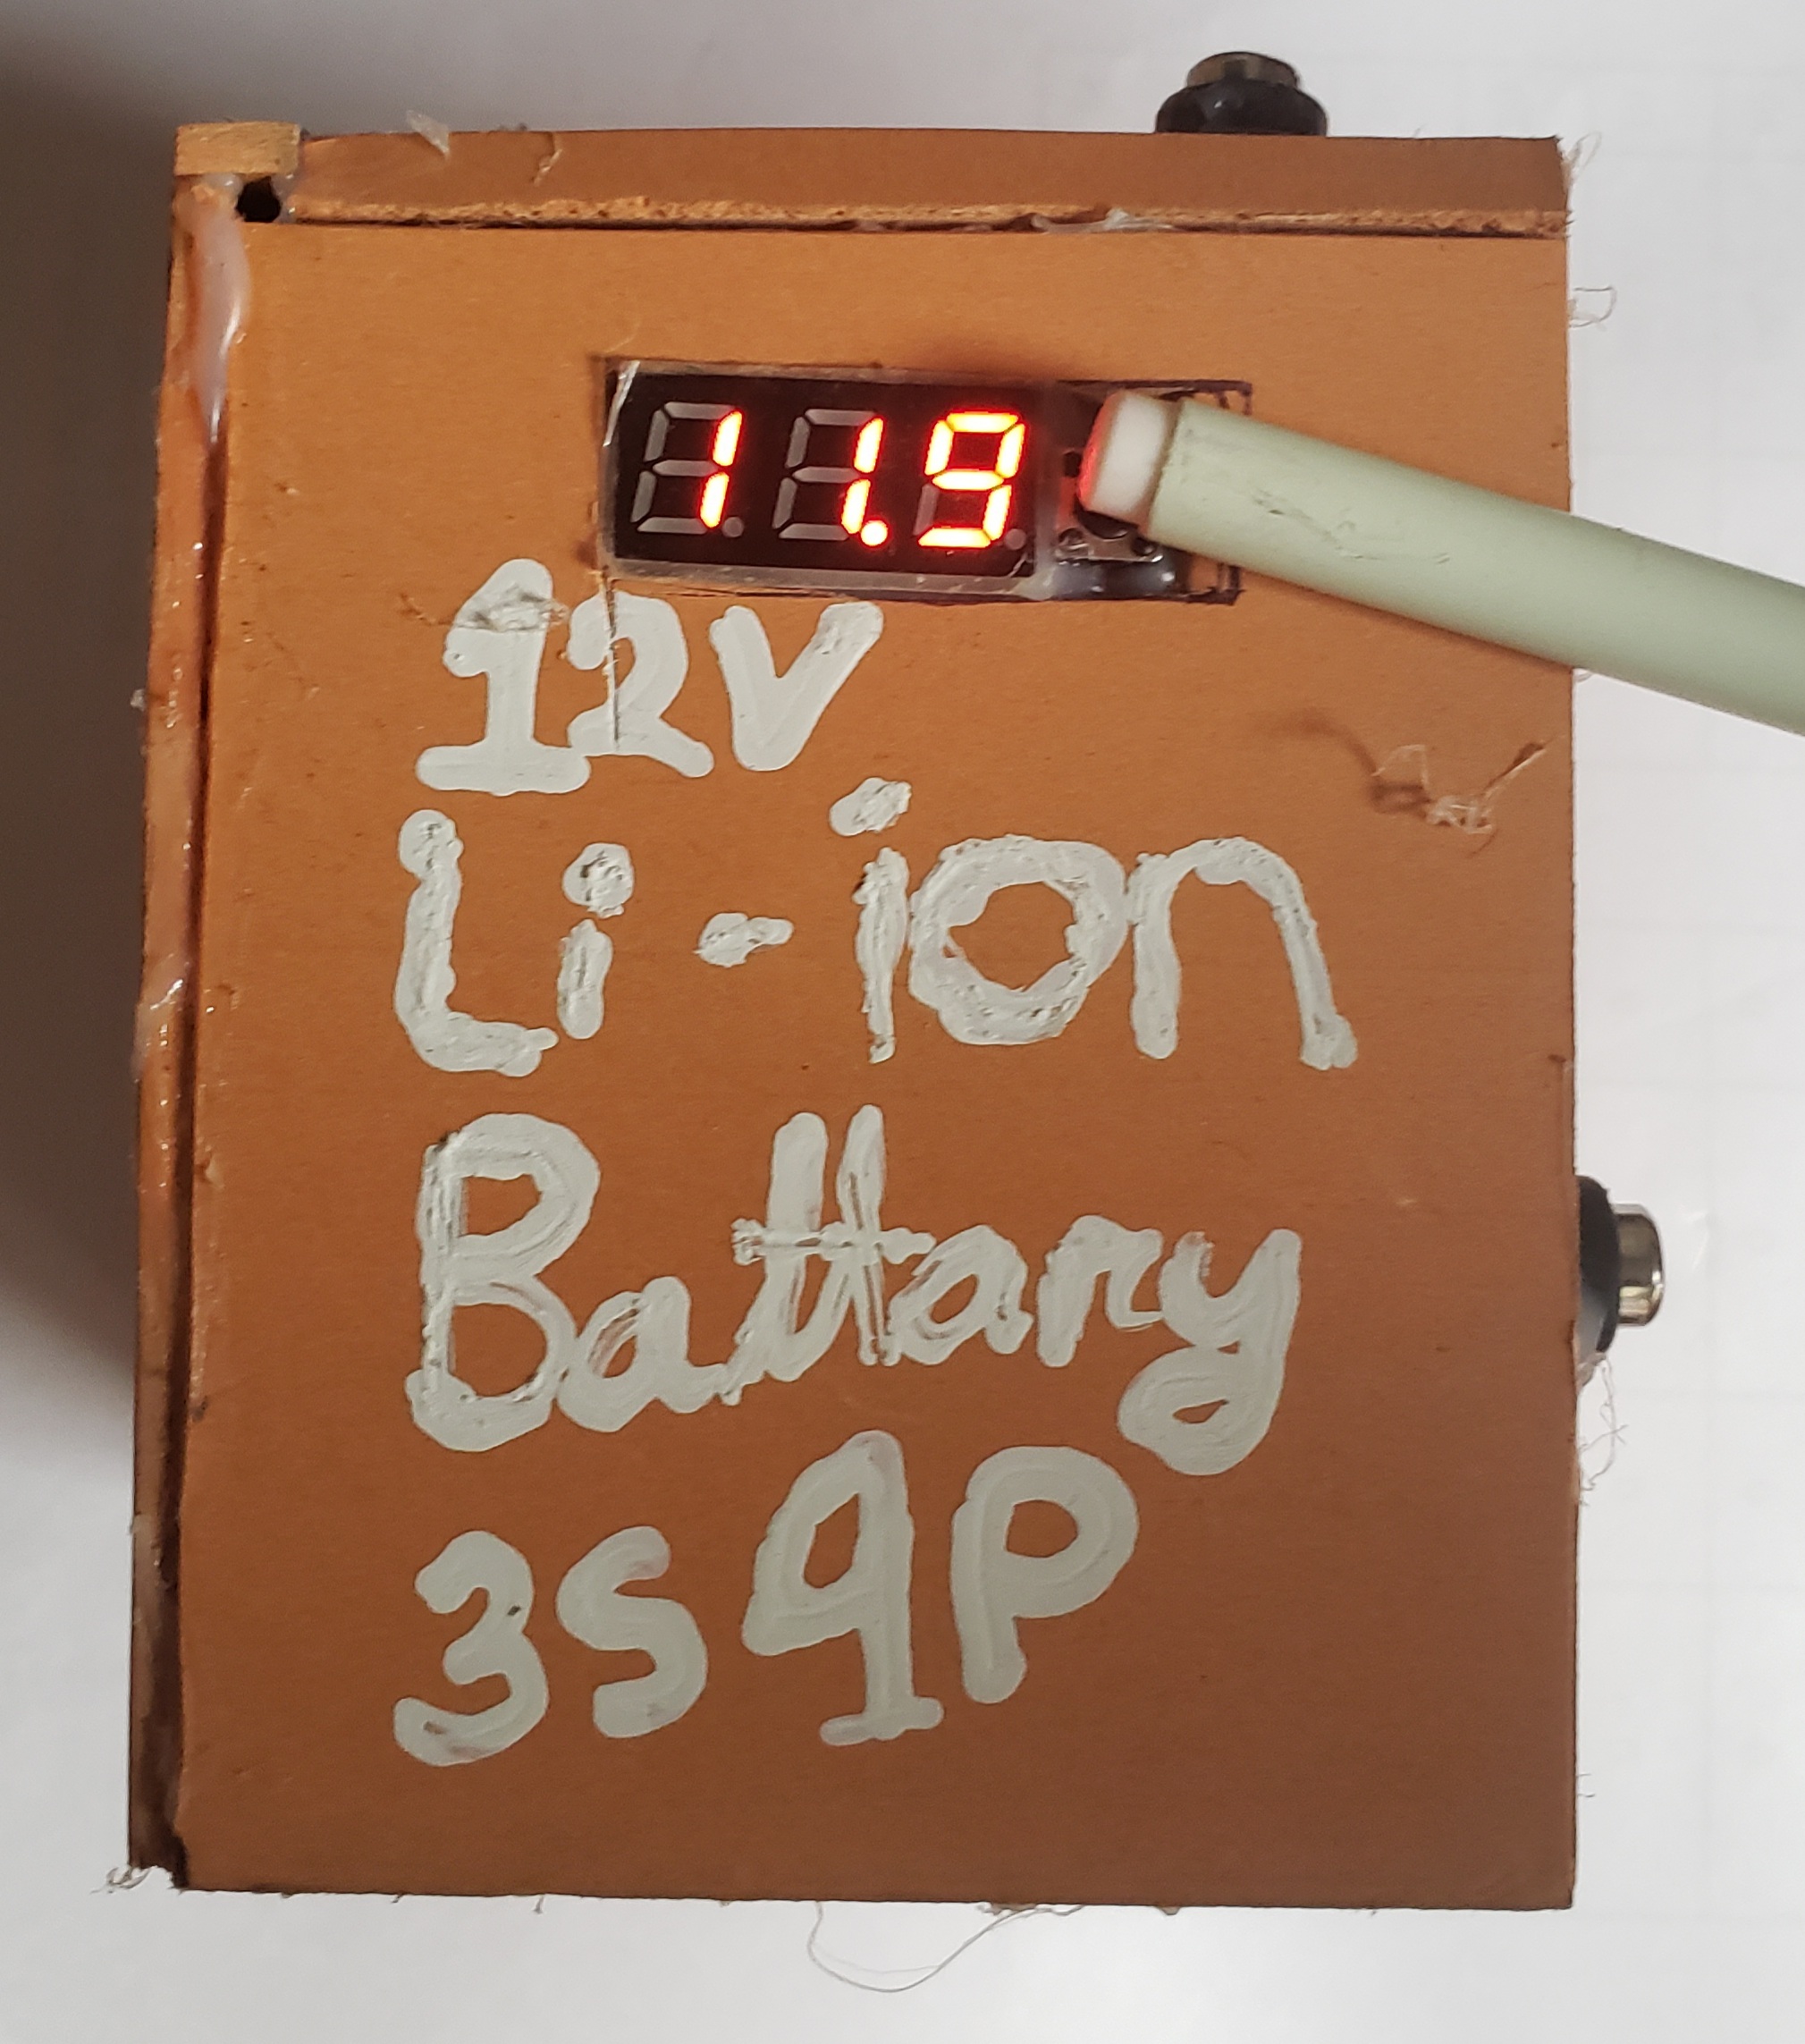 11.9
12V
Li-ion
Battary
3S 9P